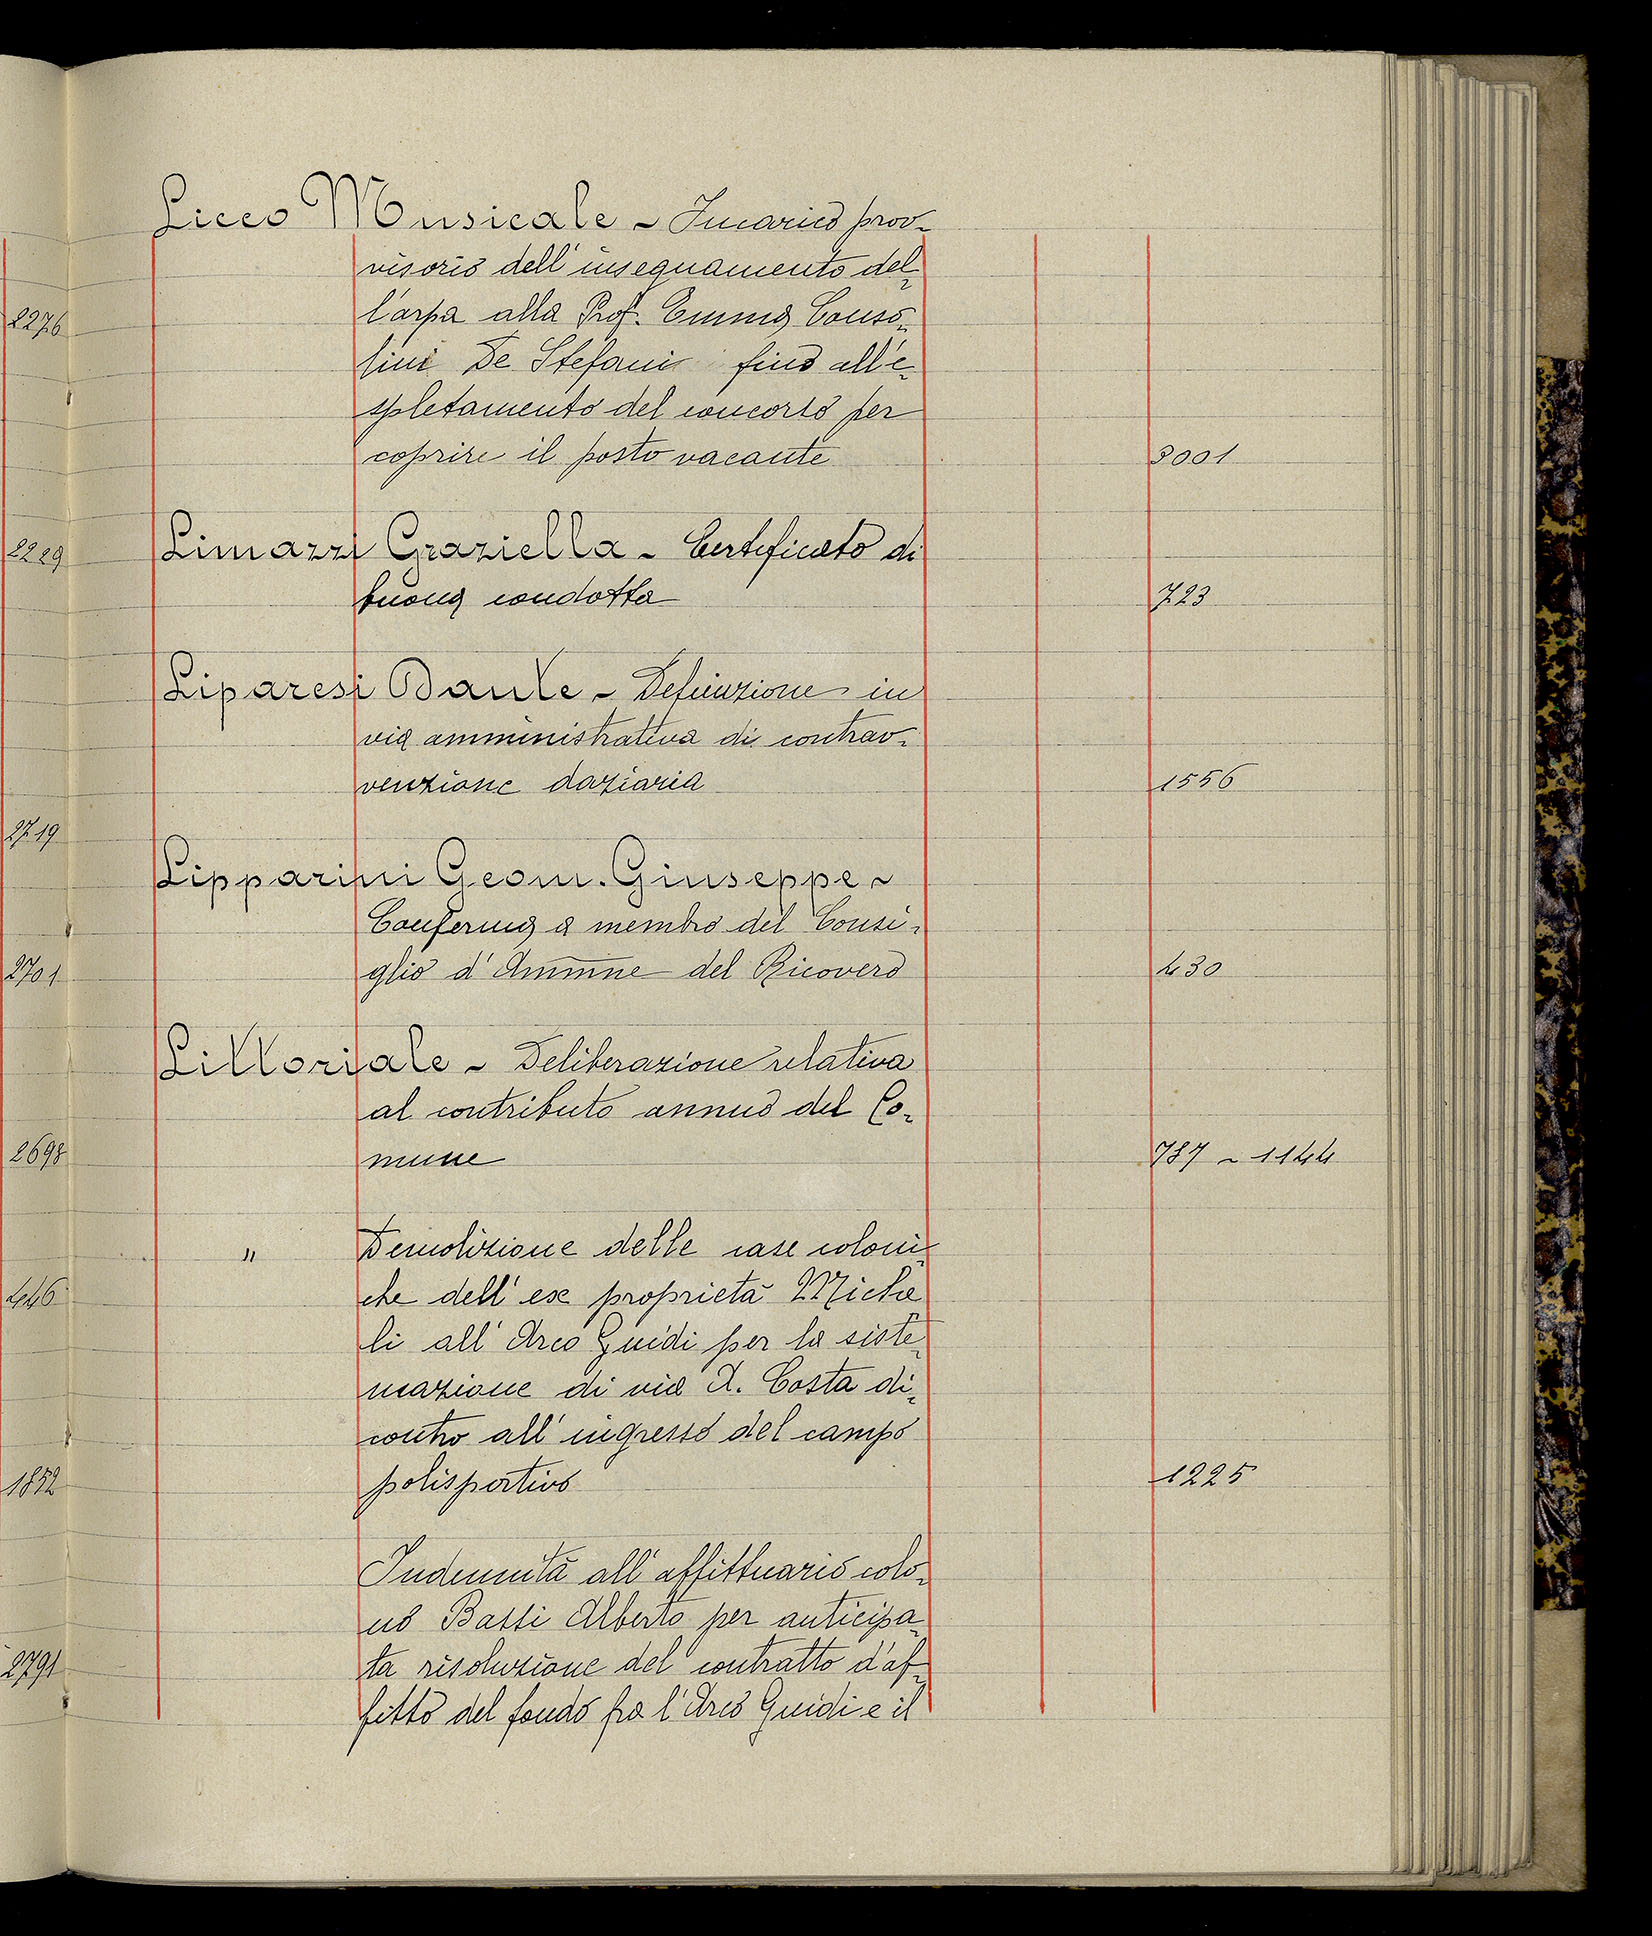 2276
2229
2719
2701
2698
446
1852
2791
Liceo Musicale - Incarico prov-
visorio dell'insegnamento del-
l'arpa alla Prof. Emma Conso-
lini De Stefani fino all'e-
spletamento del concorso per
coprire il posto vacante 3001
Limazzi Graziella - Certificato di
buona condotta 723
Liparesi Dante - Definizione in
via amministrativa di contrav-
venzione daziaria 1556
Lipparini Geom. Giuseppe -
Conferma a membro del Consi-
glio d'Ammne del Ricovero 430
Littoriale - Deliberazione relativa
al contributo annuo del Co-
mune 787 - 1144
" Demolizione delle case coloni-
che dell'ex proprietà Miche-
li all'Arco Guidi per la siste-
mazione di via A. Costa di-
contro all'ingresso del campo
polisportivo 1225
Indennità all'affittuario colo-
no Bassi Alberto per anticipa-
ta risoluzione del contratto d'af-
fitto del fondo fra l'Arco Guidi e il